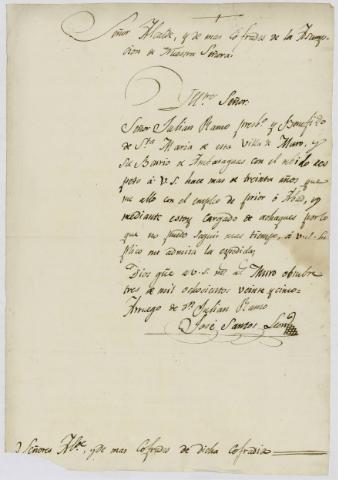 Señor Alcalde, y demas Cofrades de la Asump-
cion de Nuestra Señora.
Muy Sres. Señor.
Señor Julian Ramo presbº y Benefido
de Sta Maria de esta Villa de Muro, y
su Barrio de con el devido res
peto á V.S. hace mas de treinta años que
me allo con el empleo de prior ó Abad, y
mediante estoy cargado de achaques por lo
que no puedo seguir mas tiempo, á V.S. su-
plico me admita la
Dios gue a V.S. ms as Muro octubre
tres de mil ochocientos veinte y cinco
Arruego de Dn Julian Ramo
José Santos
Señores Abde, y de mas Cofrades de dicha Cofradia